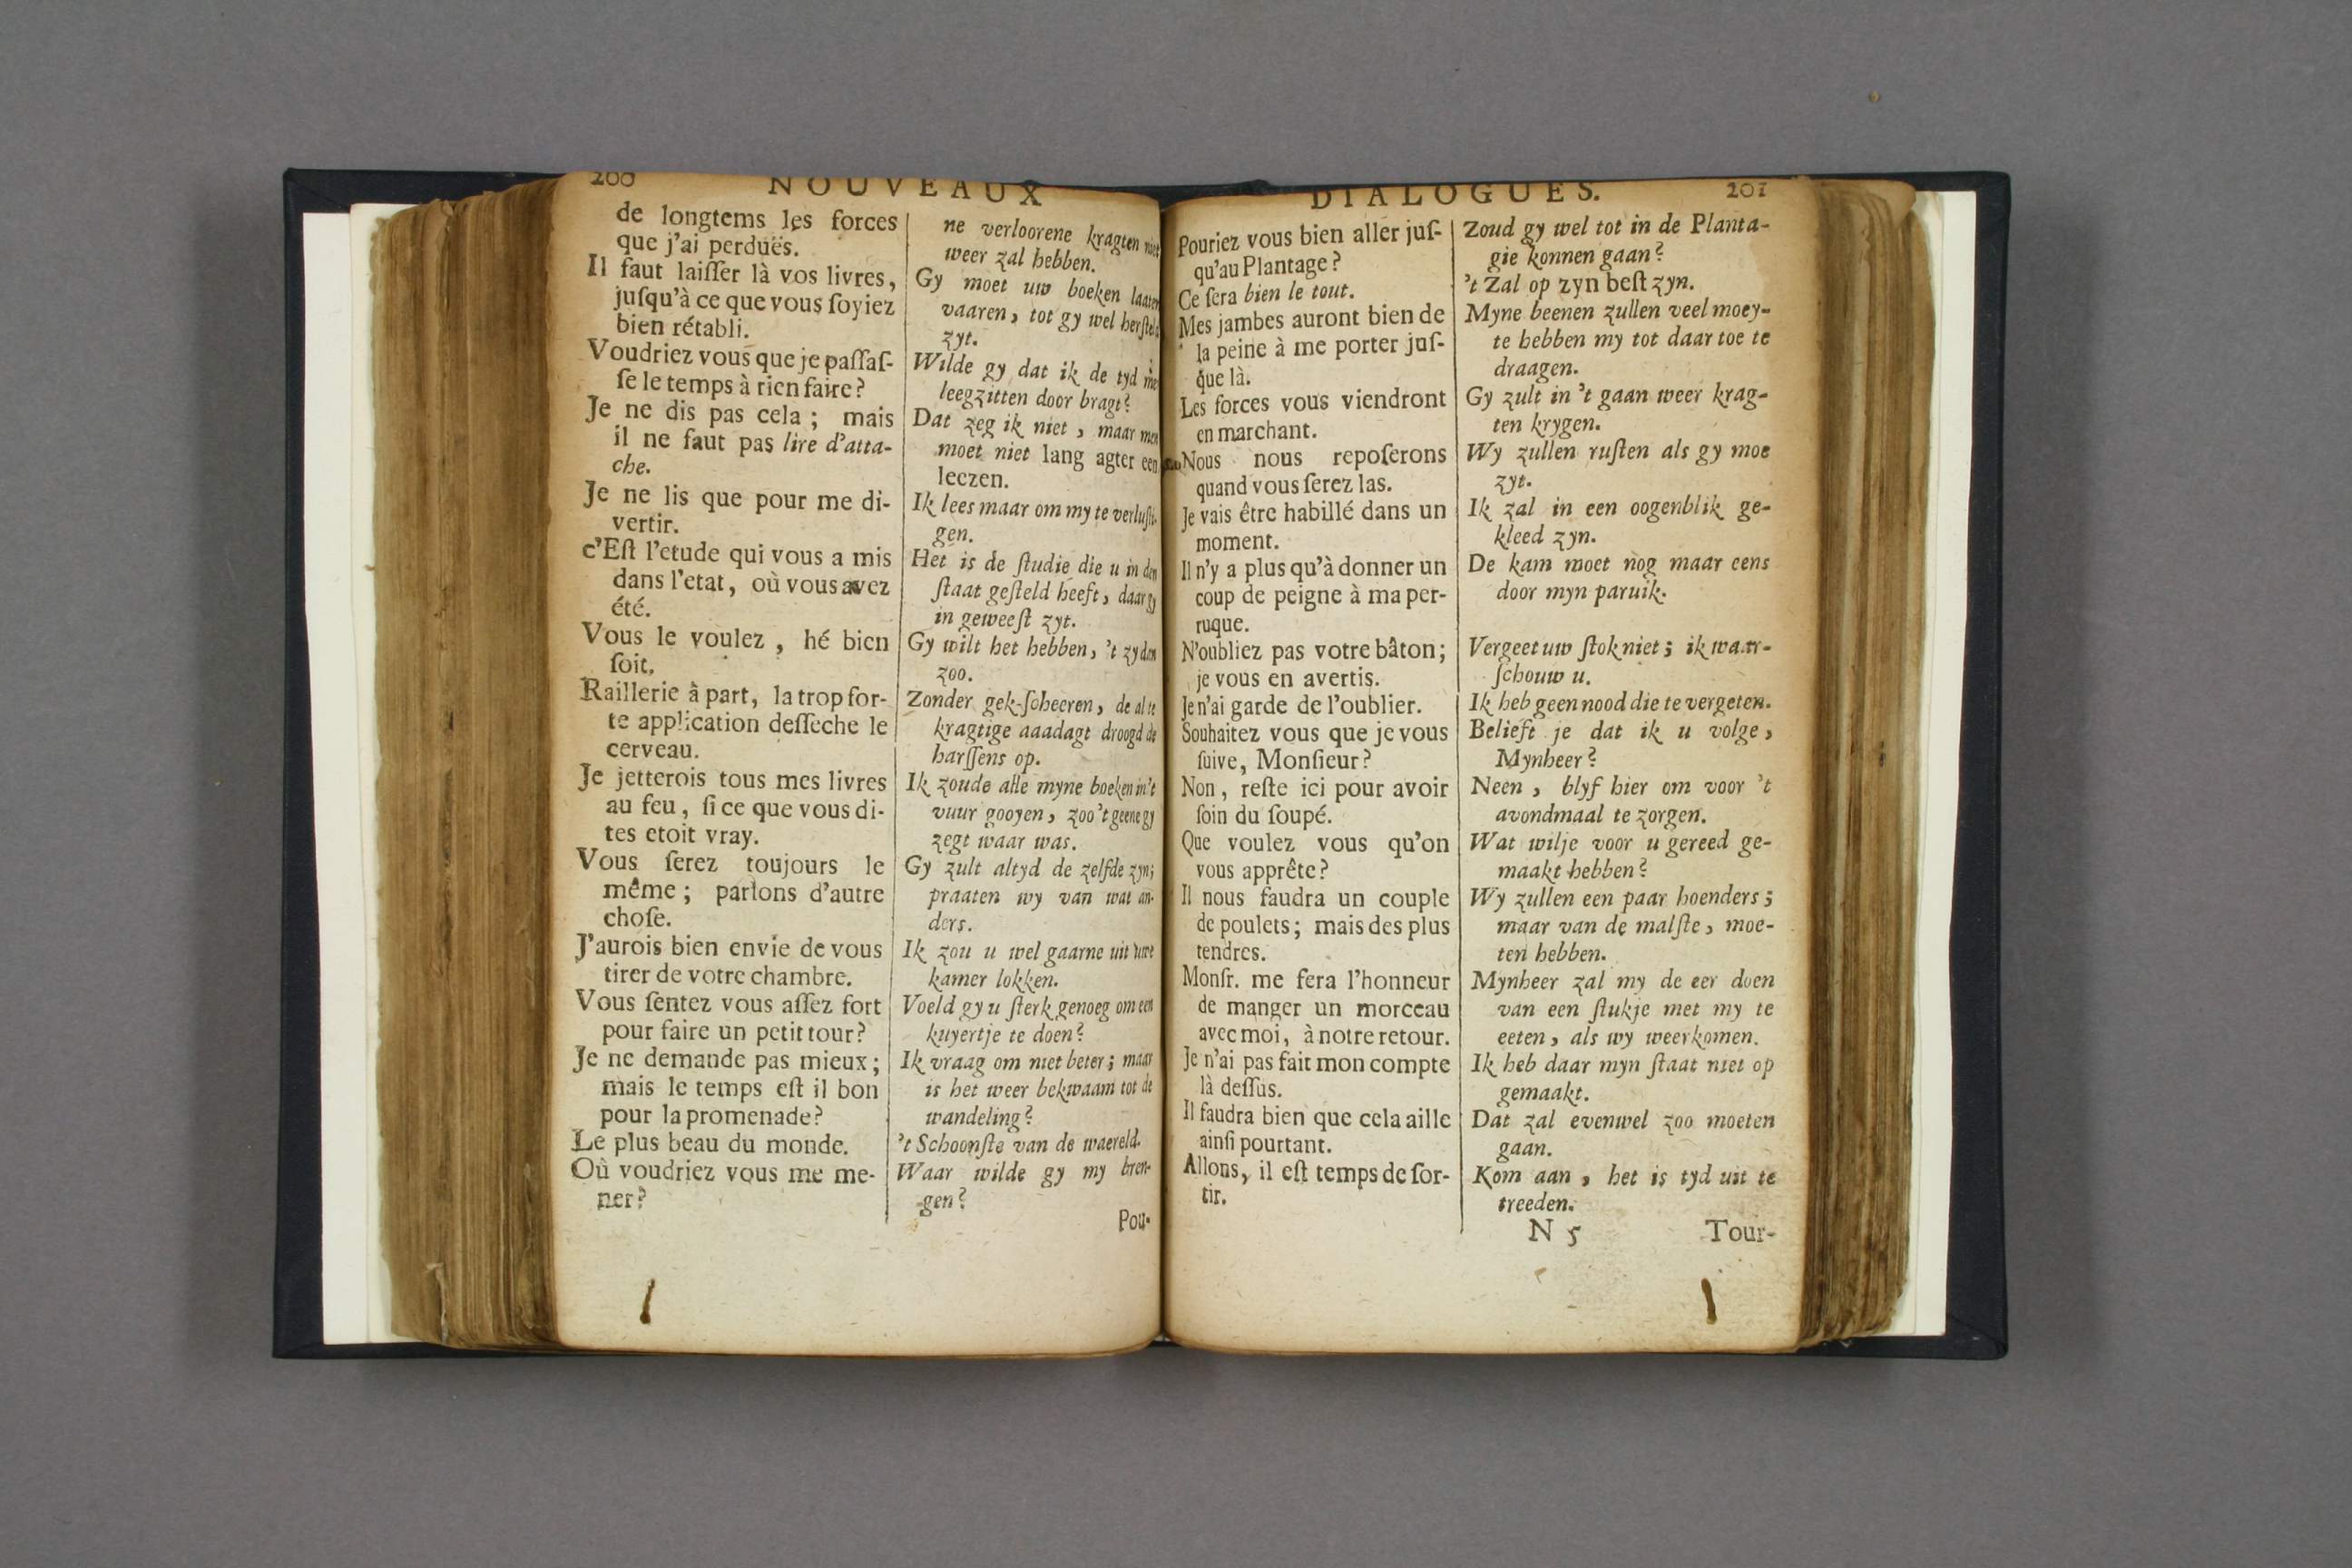 200 NOUVEAUX
de longtems les forces
que j'ai perduës.
Il faut laiſſer là vos livres,
juſqu'à ce que vous ſoyiez
bien rétabli.
Voudriez vous que je paſſaſ-
ſe le temps à rien faire?
Je ne dis pas cela; mais
il ne faut pas lire d'atta-
che.
Je ne lis que pour me di-
vertir.
c'Eſt l'etude qui vous a mis
dans l'etat, où vous avez
été.
Vous le voulez, hé bien
ſoit,
Raillerie à part, la trop for-
te application deſſeche le
cerveau.
Je jetterois tous mes livres
au feu, ſi ce que vous di-
tes etoit vray.
Vous ſerez toujours le
même; parlons d'autre
choſe.
J'aurois bien envie de vous
tirer de votre chambre.
Vous ſentez vous aſſez fort
pour faire un petit tour?
Je ne demande pas mieux;
mais le temps eſt il bon
pour la promenade?
Le plus beau du monde.
Où voudriez vous me me-
ner?
ne verloorene kragten niet
weer zal hebben.
Gy moet uw boeken laaten
vaaren, tot gy wel herſteld
zyt.
Wilde gy dat ik de tyd
leegzitten door bragt?
Dat zeg ik niet, maar men
moet niet lang agter een
leezen.
Ik lees maar om my te verluſti-
gen.
Het is de ſtudie die u in den
ſtaat geſteld heeft, daar gy
in geweeſt zyt.
Gy wilt het hebben, 't zy dan
zoo.
Zonder gek-ſcheeren, de al te
kragtige aaadagt droogd de
harſſens op.
Ik zoude alle myne boeken in't
vuur gooyen, zoo 't geene gy
zegt waar was.
Gy zult altyd de zelfde zyn;
praaten wy van wat an-
ders.
Ik zou u wel gaarne uit uwe
kamer lokken.
Voeld gy u ſterk genoeg om een
kuyertje te doen?
Ik vraag om niet beter; maar
is het weer bekwaam tot de
wandeling?
't Schoonſte van de waereld.
Waar wilde gy my bren-
gen?
Pou-
DIALOGUES. 201
Pouriez vous bien aller juſ-
qu'au Plantage?
Ce ſera bien le tout.
Mes jambes auront bien de
la peine à me porter juſ-
que là.
Les forces vous viendront
en marchant.
Nous nous repoſerons
quand vous ſerez las.
Je vais être habillé dans un
moment.
Il n'y a plus qu'à donner un
coup de peigne à ma per-
ruque.
N'oubliez pas votre bâton;
je vous en avertis.
Je n'ai garde de l'oublier.
Souhaitez vous que je vous
ſuive, Monſieur?
Non, reſte ici pour avoir
ſoin du ſoupé.
Que voulez vous qu'on
vous apprête?
Il nous faudra un couple
de poulets; mais des plus
tendres.
Monſr. me fera l'honneur
de manger un morceau
avec moi, à notre retour.
Je n'ai pas fait mon compte
là deſſus.
Il faudra bien que cela aille
ainſi pourtant.
Allons, il eſt temps de ſor-
tir.
Zoud gy wel tot in de Planta-
gie konnen gaan?
't Zal op zyn beſt zyn.
Myne beenen zullen veel moey-
te hebben my tot daar toe te
draagen.
Gy zult in 't gaan weer krag-
ten krygen.
Wy zullen ruſten als gy moe
zyt.
Ik zal in een oogenblik ge-
kleed zyn.
De kam moet nog maar eens
door myn paruik.
Vergeet uw ſtok niet; ik waar-
ſchouw u.
Ik heb geen nood die te vergeten.
Belieft je dat ik u volge,
Mynheer?
Neen, blyf hier om voor 't
avondmaal te zorgen.
Wat wilje voor u gereed ge-
maakt hebben?
Wy zullen een paar hoenders;
maar van de malſte, moe-
ten hebben.
Mynheer zal my de eer doen
van een ſtukje met my te
eeten, als wy weerkomen.
Ik heb daar myn ſtaat niet op
gemaakt.
Dat zal evenwel zoo moeten
gaan.
Kom aan, het is tyd uit te
treeden.
N 5 Tour-